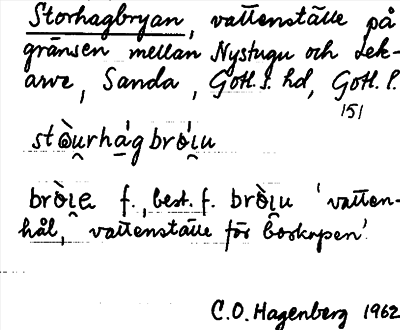 Storhagbryan, vattenställe på
gränsen mellan Nystugu och Lek-
arve, Sanda, Gotl. s. hd, Gotl. l.
151
stò̯u̯rhág brö̀i̯u
brö̀i̯e f., best. f. brö̀i̯u 'vatten-
hål, vattenställe för boskapen'.
C.O. Hagenberg 1962